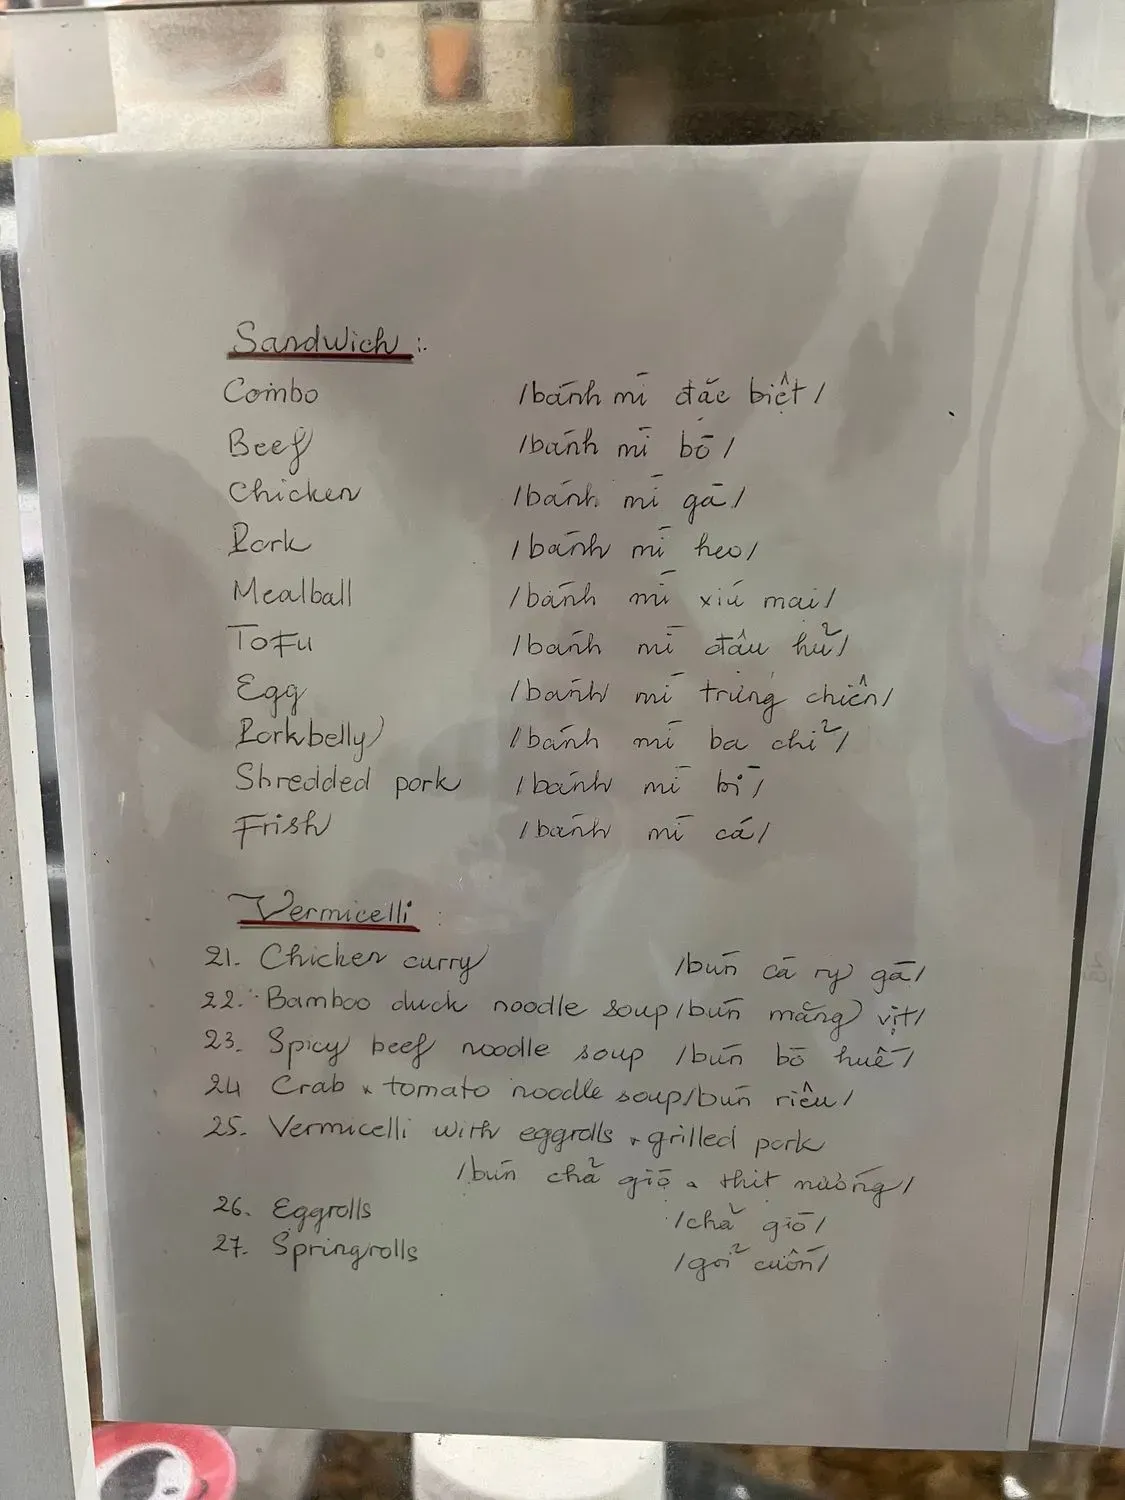 Sandwich :
Combo /bánh mì đặc biệt/
Beef /bánh mì bò/
Chicken /bánh mì gà/
Pork /bánh mì heo/
Mealball /bánh mì xíu mại/
Tofu /bánh mì đậu hủ/
Egg /bánh mì trứng chiên/
Porkbelly /bánh mì ba chỉ/
Shredded pork /bánh mì bì/
Frish /bánh mì cá/
Vermicelli :
21. Chicken curry /bún cà ry gà/
22. Bamboo duck noodle soup /bún măng vịt/
23. Spicy beef noodle soup /bún bò huế/
24 Crab & tomato noodle soup /bún riêu/
25. Vermicelli with eggrolls & grilled pork
/bún chả giò & thịt nướng/
26. Eggrolls /chả giò/
27. Springrolls /gỏi cuốn/